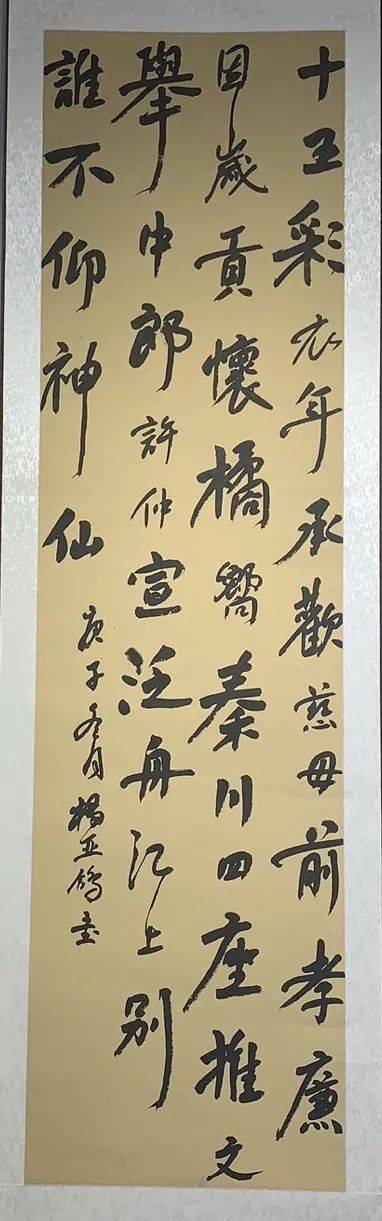 十五彩衣年承歡慈母前孝廉
因歲貢懷橘嚮秦川四座推文
舉中郎許仲宣泛舟江上別
誰不仰神仙
庚子冬月楊亚鸽書